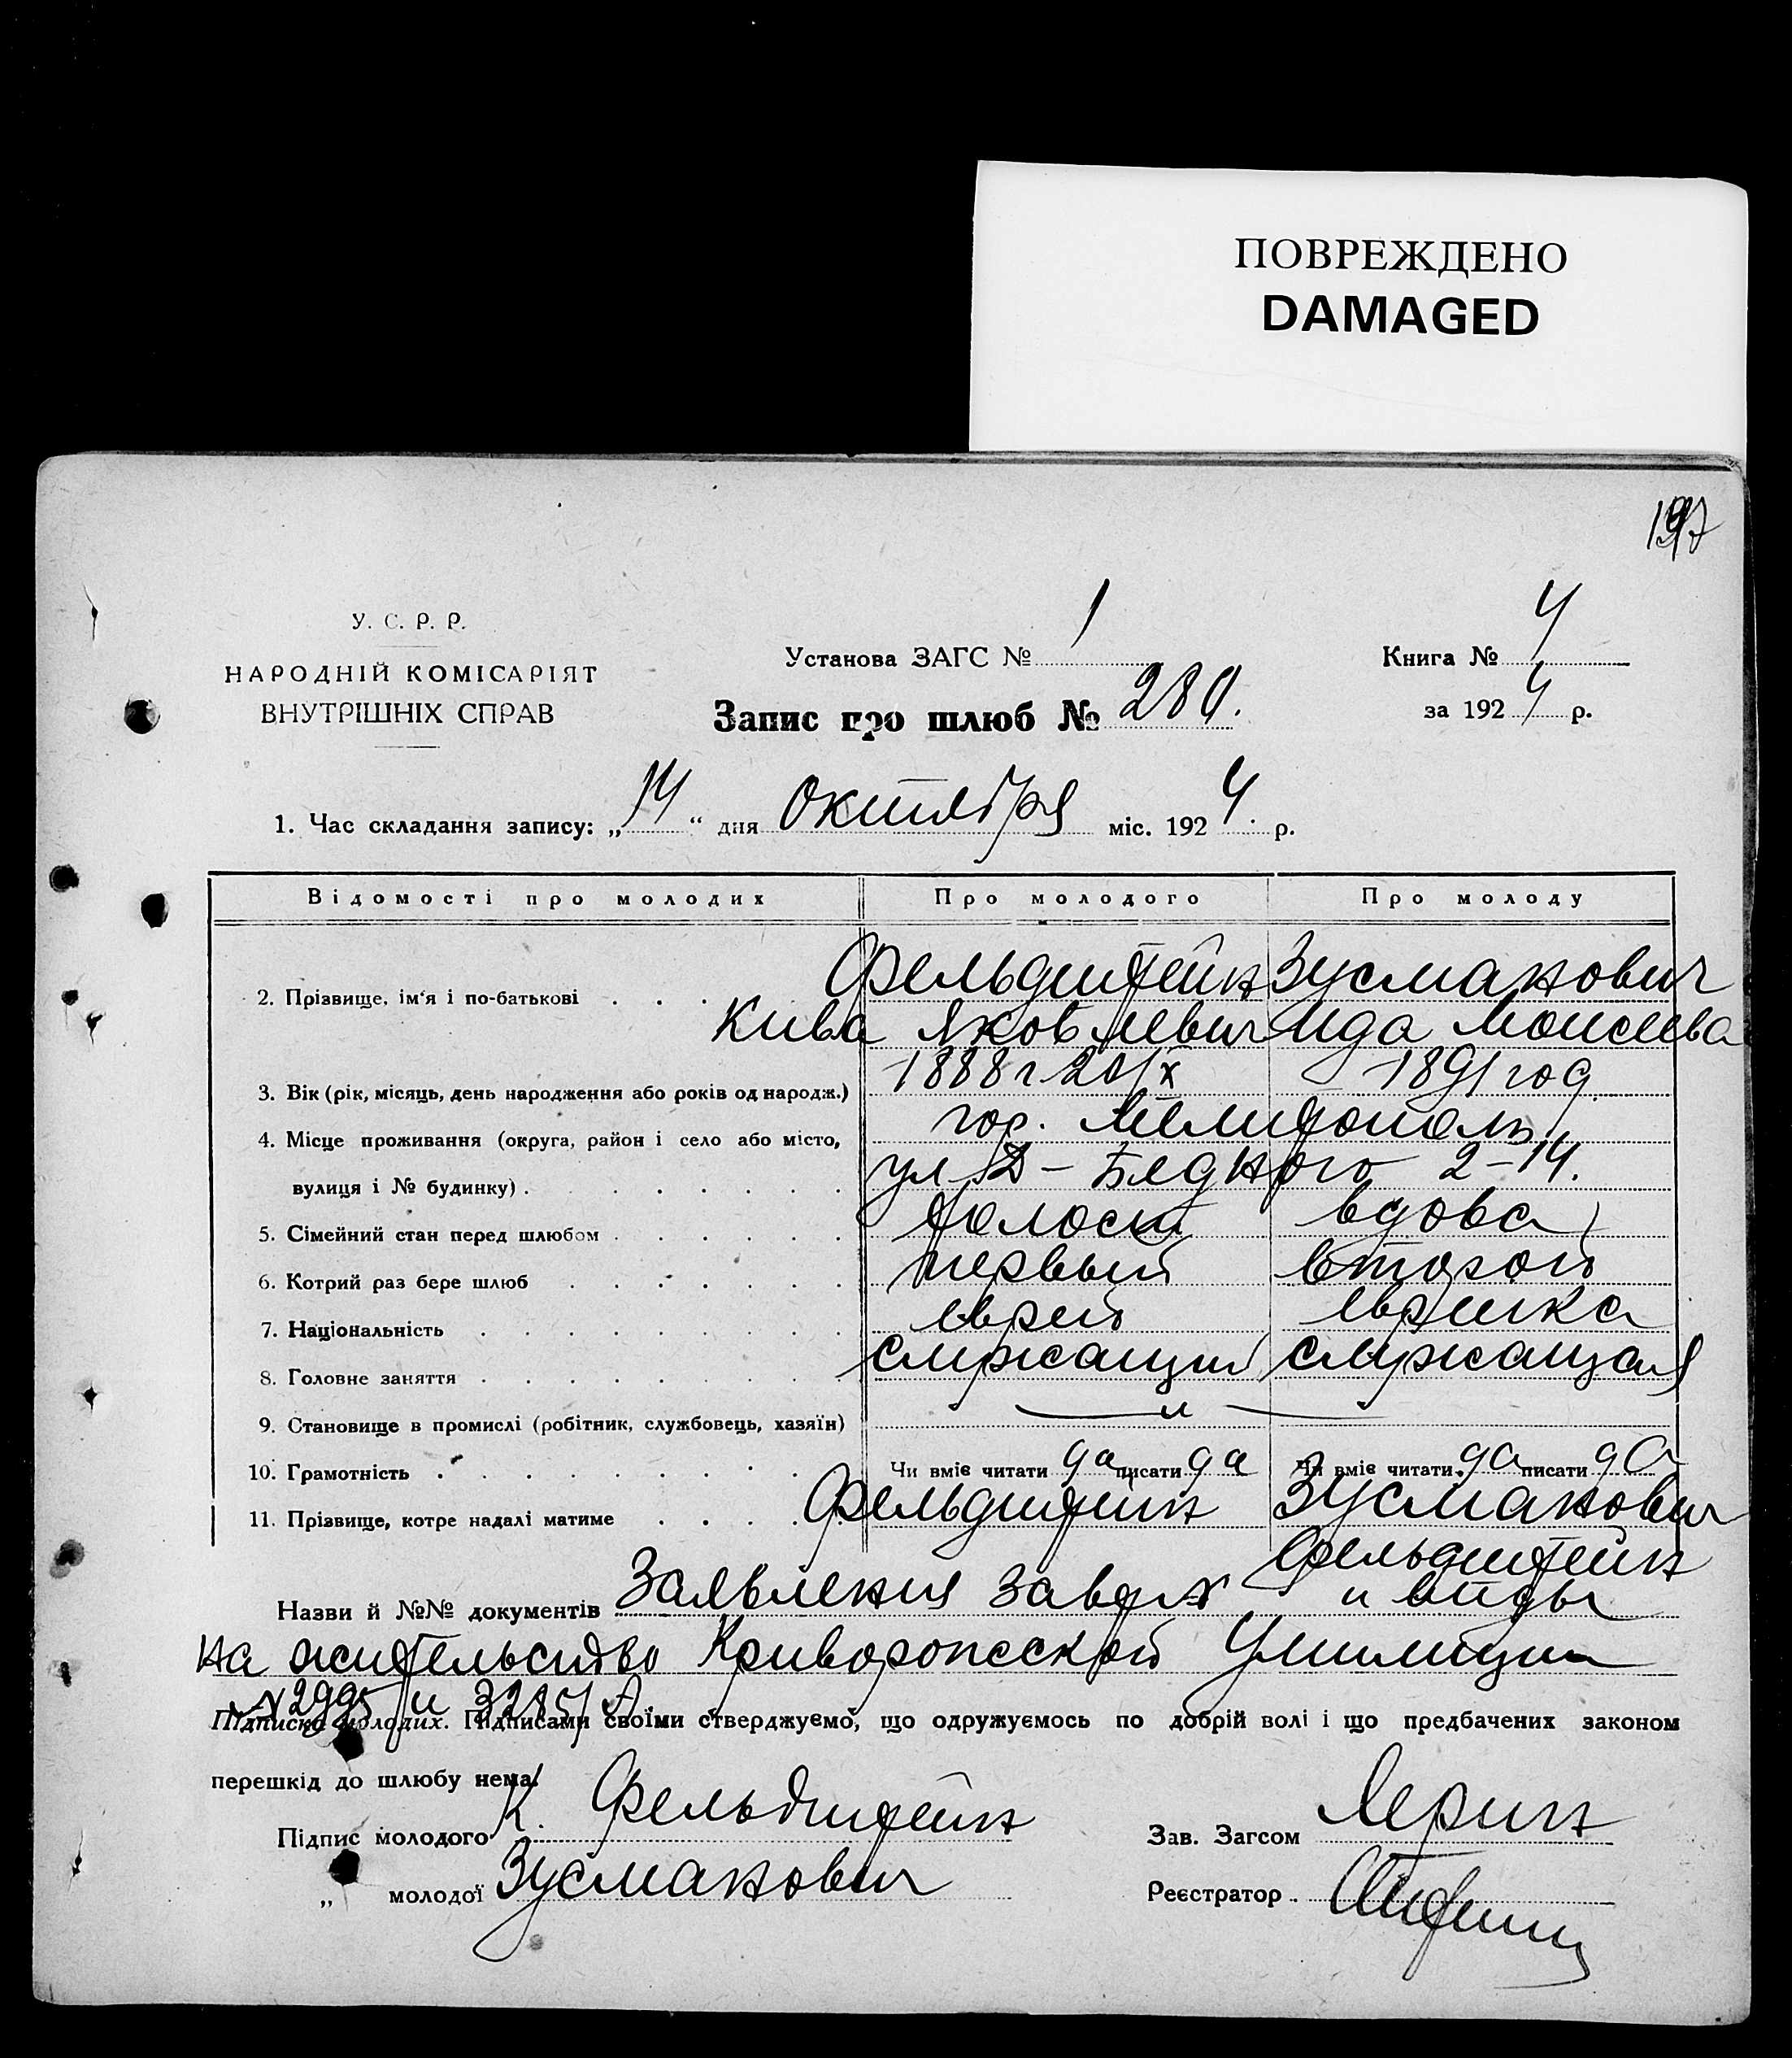 ПОВРЕЖДЕНО
DAMAGED
У. С. Р. Р.
НАРОДНІЙ КОМІСАРІЯТ
ВНУТРІШНІХ СПРАВ
Установа ЗАГС № 1
Книга № 4
Запис про шлюб № 280.
за 1924 р.
1. Час складання запису: „14“ дня октября міс. 1924. р.
Відомості про молодих Про молодого Про молоду
2. Прізвище, ім'я і по-батькові Фельдштейн Зусманович
Кива Яковлевич Ида Моисеева
3. Вік (рік, місяць, день народження або років од народж.) 1888 г 20/X 1891 год
4. Місце проживання (округа, район і село або місто, гор. Мелитополь
вулиця і № будинку) ул Д-Бедного 2-14.
5. Сімейний стан перед шлюбом холост вдова
6. Котрий раз бере шлюб первый второй
7. Національність еврей еврейка
8. Головне заняття служащий служащая
9. Становище в промислі (робітник, службовець, хазяїн) — " —
10. Грамотність Чи вміє читати да писати да Чи вміє читати да писати да
11. Прізвище, котре надалі матиме Фельдштейн Зусманович
Фельдштейн
Назви й №№ документів Заявления и виды
на жительство Криворожской Умилиции
№ 2995 и 3215/
Підписка молодих. Підписами своїми стверджуємо, що одружуємось по добрій волі і що предбачених законом
перешкід до шлюбу нема.
Підпис молодого К. Фельдштейн
Зав. Загсом
„ молодої Зусманович
Реєстратор